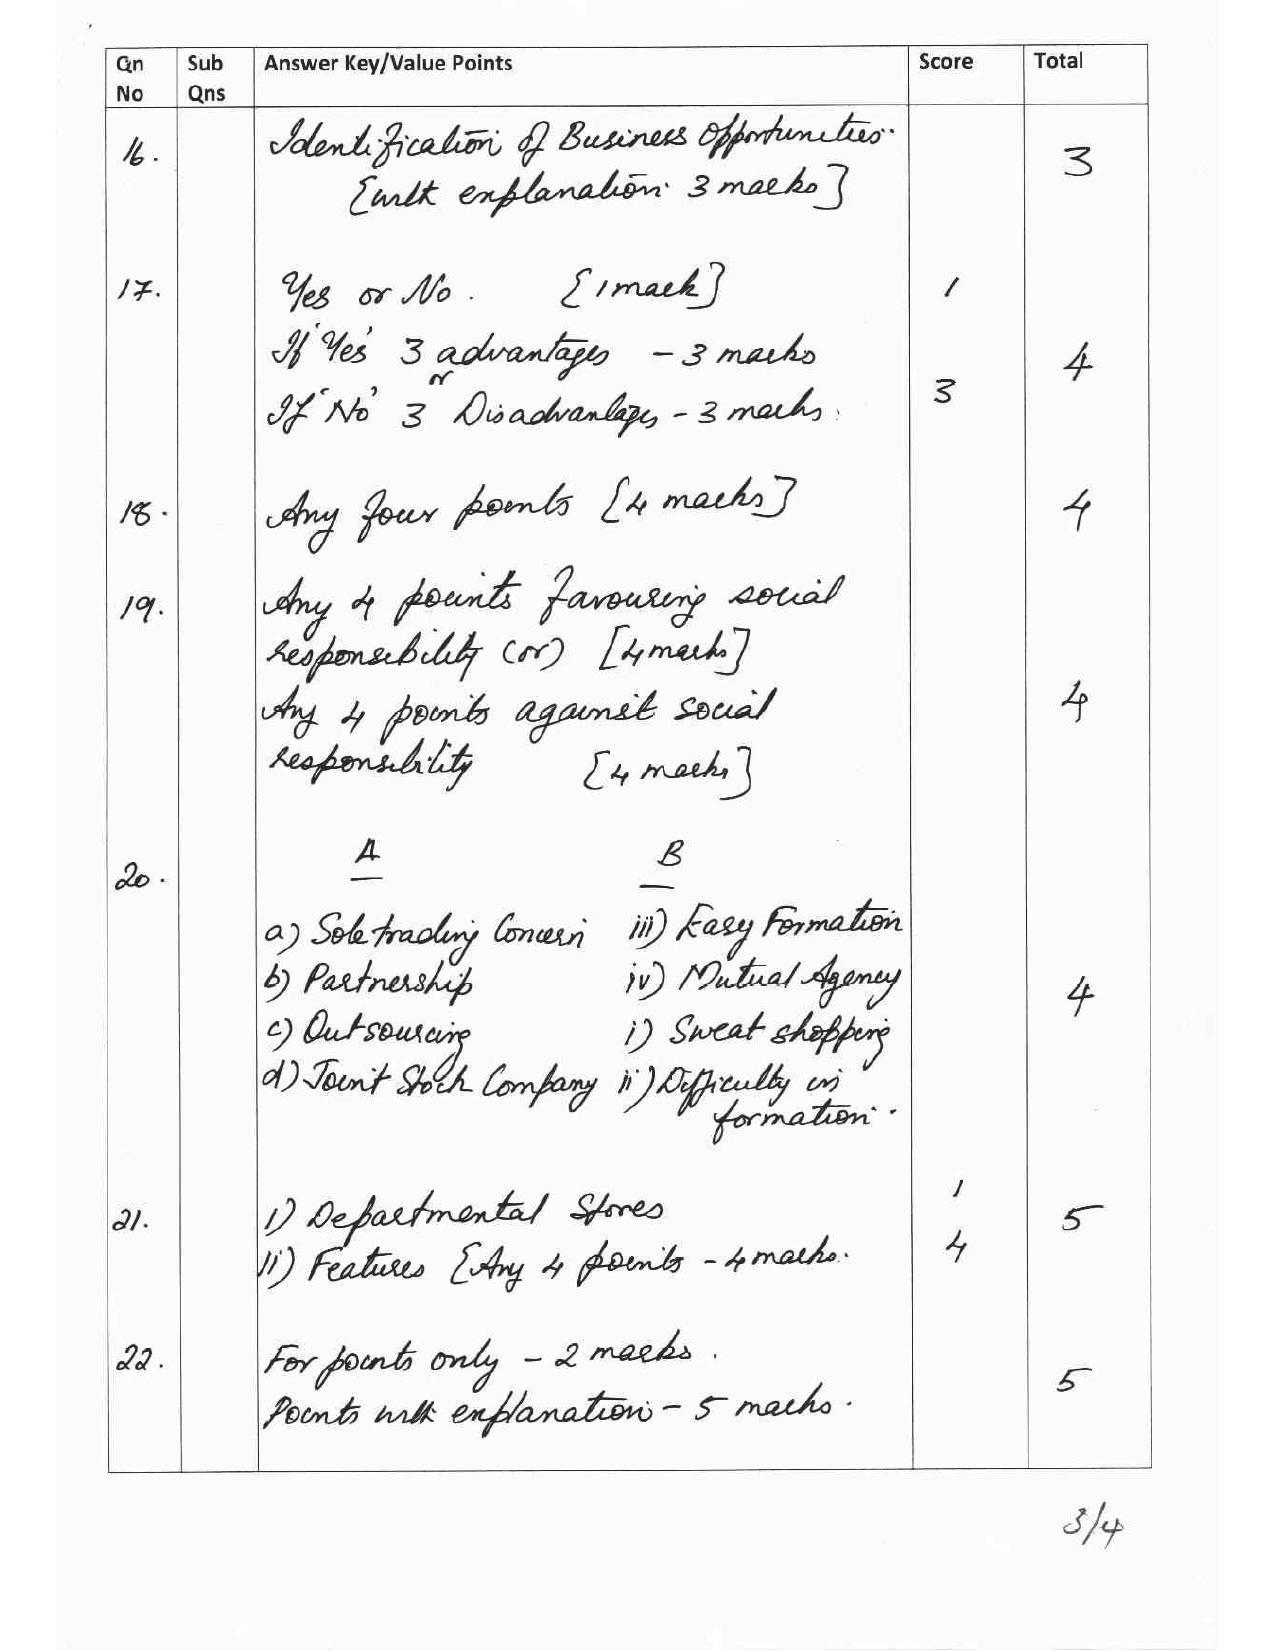 Qn Sub Answer Key/Value Points Score Total
No Qns
16. Identification of Business Opportunities. 3
[with explanation 3 marks]
17. Yes or No. [1 mark] 1
If 'Yes' 3 advantages - 3 marks 4
or 3
If 'No' 3 Disadvantages - 3 marks.
18. Any four points [4 marks] 4
19. Any 4 points favouring social
responsibility (or) [4 marks]
Any 4 points against social 4
responsibility [4 marks]
A B
20.
a) Sole trading Concern iii) Easy Formation
b) Partnership iv) Mutual Agency 4
c) Outsourcing i) Sweat shopping
d) Joint Stock Company ii) Difficulty in
formation.
1
21. i) Departmental Stores 5
ii) Features [Any 4 points - 4 marks. 4
22. For points only - 2 marks. 5
Points with explanation - 5 marks.
3/4